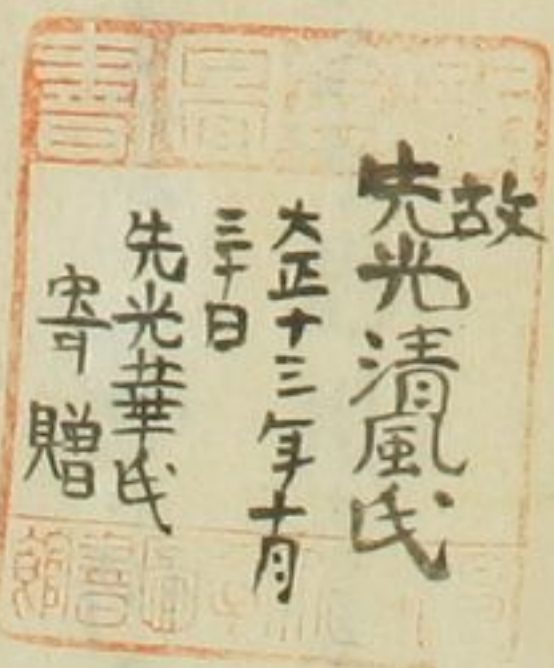 圖書
故
先光清風氏
大正十三年十月
三十日
先光華氏
寄贈
圖書館